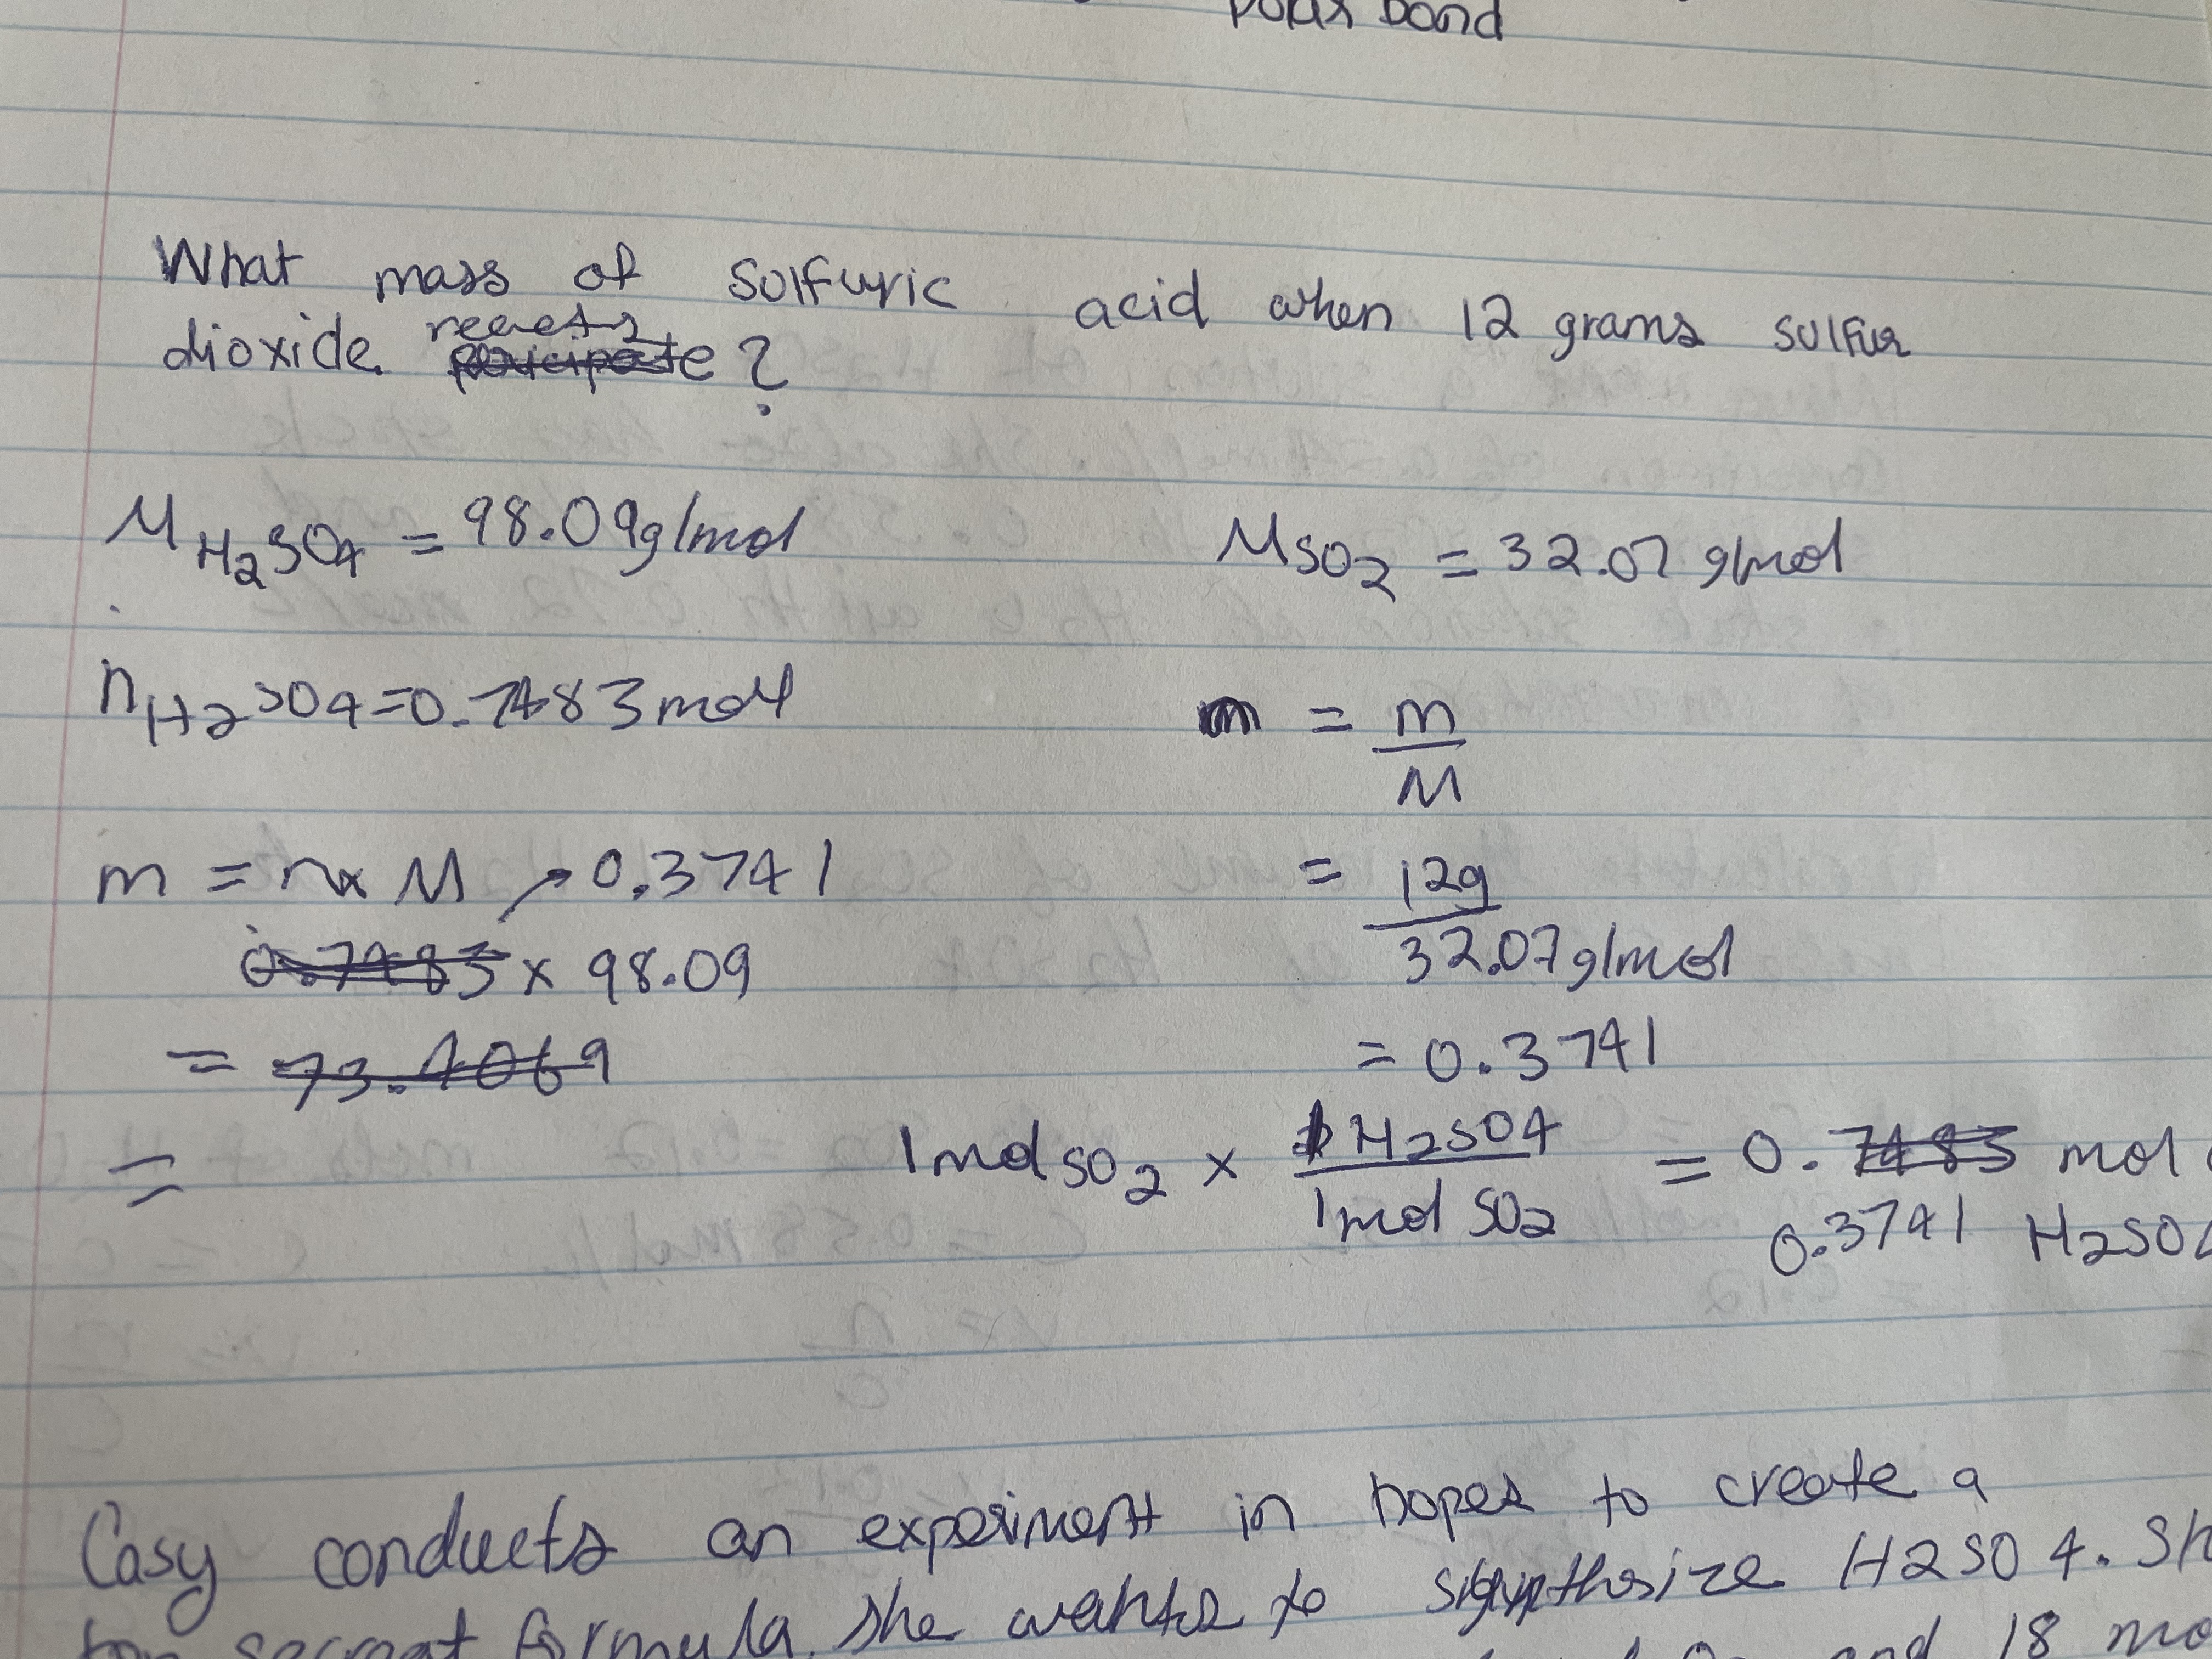 polar bond
What mass of solfuric acid when 12 grams sulfur
dioxide reacts?
M H2SO4 = 98.09g/mol
M SO2 = 32.07 g/mol
n H2SO4 = 0.7483 mol
n = m/M
m = n x M → 0.3741
= 12g/32.07g/mol
0.7483 x 98.09
= 0.3741
= 73.4069
=
1 mol SO2 x 1 H2SO4/1 mol SO2 = 0.7483 mol
0.3741 H2SO4
Casy conducts an experiment in hopes to create a
secreat formula. She wants to synthesize H2SO4. Sh
18 mo